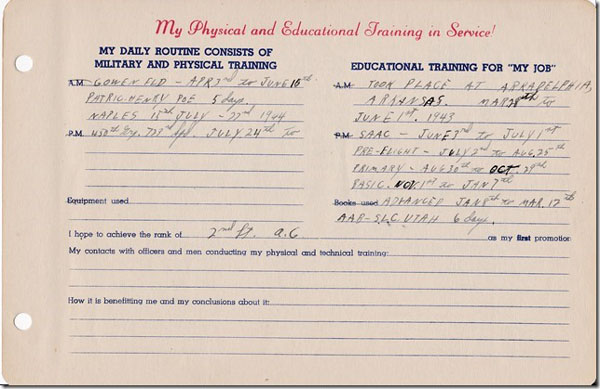 My Physical and Educational Training in Service!
MY DAILY ROUTINE CONSISTS OF
MILITARY AND PHYSICAL TRAINING
A.M. GOWEN FLD - APR 3rd to JUNE 10th
PATRIC-HENRY POE 5 days.
NAPLES 15th JULY - 22nd 1944
P.M. 450th JULY 24th to
Equipment used
EDUCATIONAL TRAINING FOR "MY JOB"
A.M. TOOK PLACE AT ARKADELPHIA,
ARKANSAS. MAR 28th to
JUNE 1st, 1943
P.M. SAAC - JUNE 3rd to JULY 1st
PRE-FLIGHT - JULY 2nd to AUG. 25th
PRIMARY - AUG 30th to OCT. 29th
BASIC. NOV. 1st to JAN 7th
Books used ADVANCED JAN 8th to MAR. 12th
AAB-SLC. UTAH 6 days.
I hope to achieve the rank of 2nd Lt. A.C as my first promotion
My contacts with officers and men conducting my physical and technical training:
How it is benefitting me and my conclusions about it: